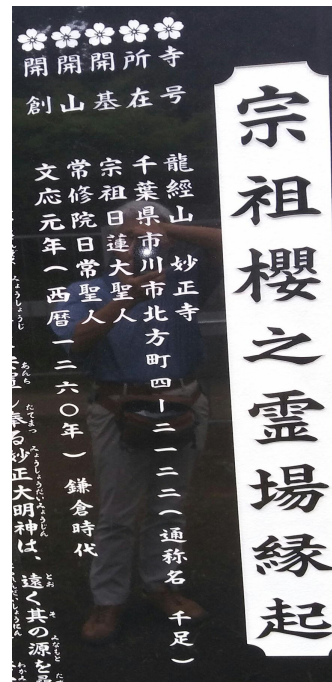 宗祖櫻之霊場縁起
寺号 龍經山 妙正寺
所在 千葉県市川市北方町四ー二一二二(通称名 千足)
開基 宗祖日蓮大聖人
開山 常修院日常聖人
開創 文応元年(西暦一二六〇年) 鎌倉時代
し奉る妙正大明神は、遠く其の源を尋